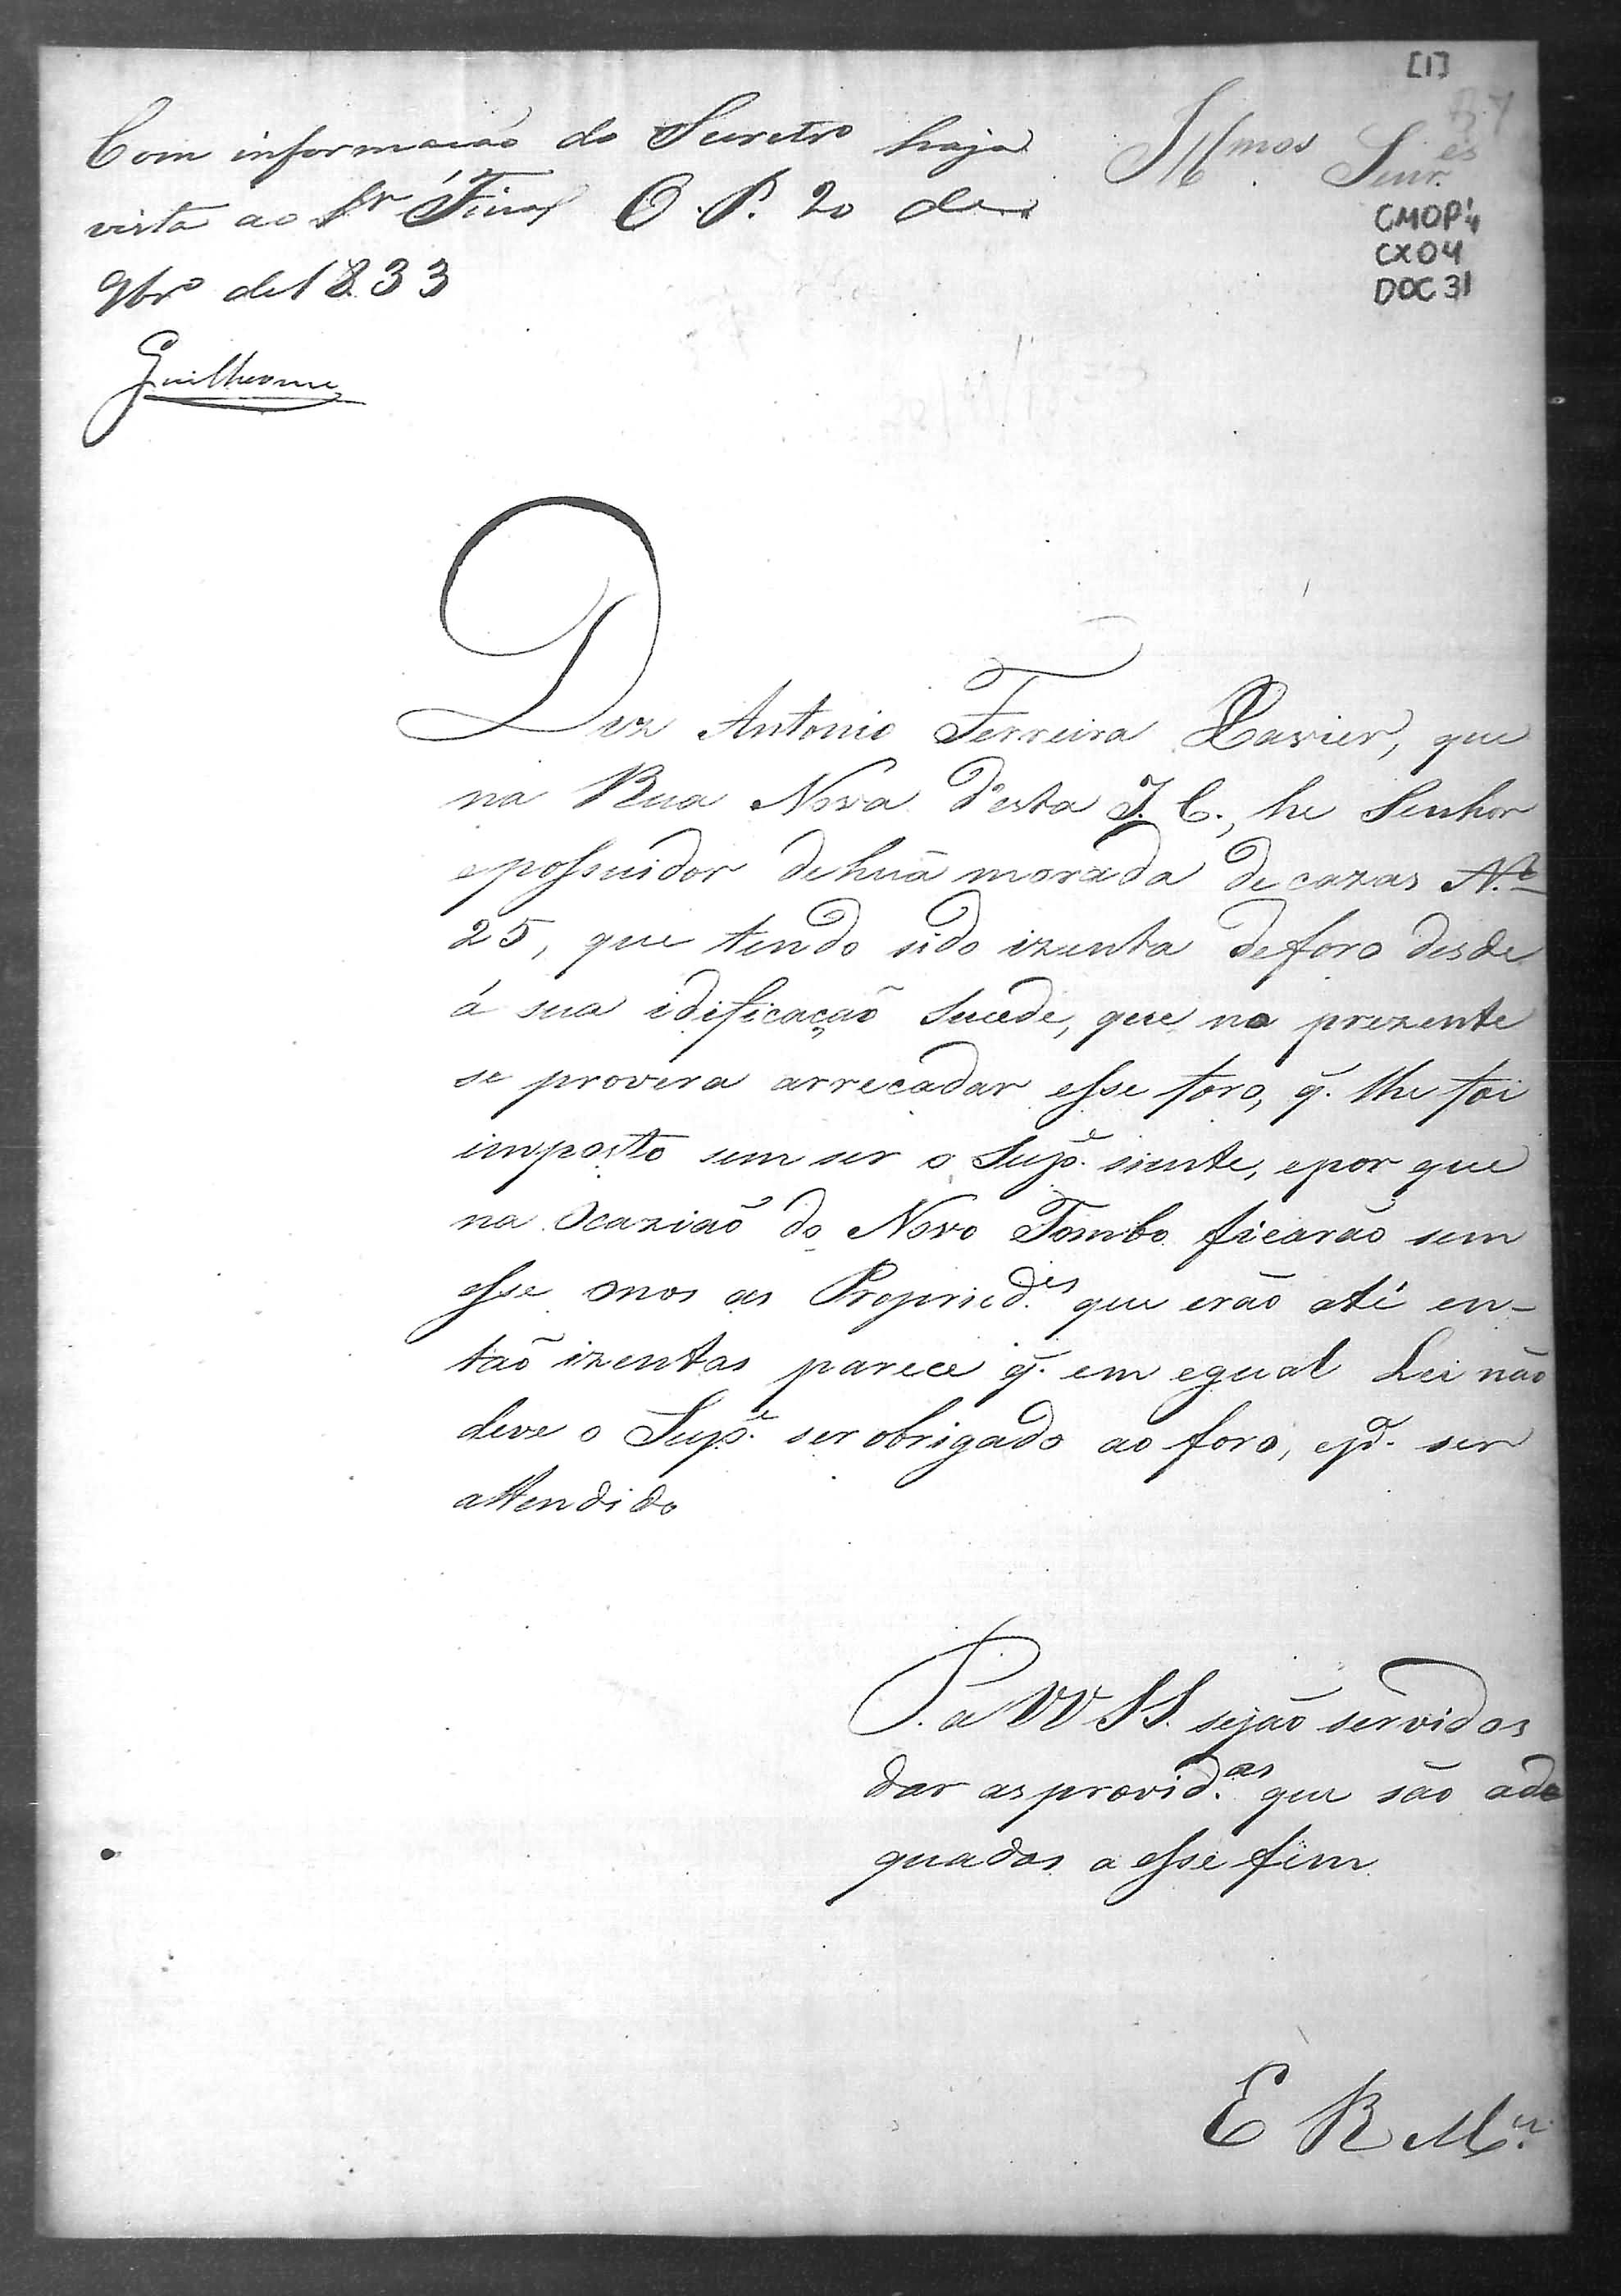 [1]
Illmos Senr.es
CMOP
CX04
DOC 31
Com informação do Secretro haja
vista ao Sr Fiscal O. P. 20 de
9bro de 1833
Guilherme
Diz Antonio Ferreira Xavier, que
na Rua Nova d'esta I. C., he Senhor
e possuidor de huã morada de cazas N.º
25, que tendo sido izenta de foro desde
á sua idificação sucede, que no prezente
se provera arrecadar esse foro, q. lhe foi
imposto sem ser o Supe. siente, e por que
na Ocazião do Novo Tombo ficarão sem
esse onos as Propried.es que erão até en-
tão izentas parece q. em egual Lei não
deve o Supe. ser obrigado ao foro, e pª. ser
attendido
P. a VV SS. sejão servidos
dar as provid.as que são ade
quadas a esse fim
E R Mce.